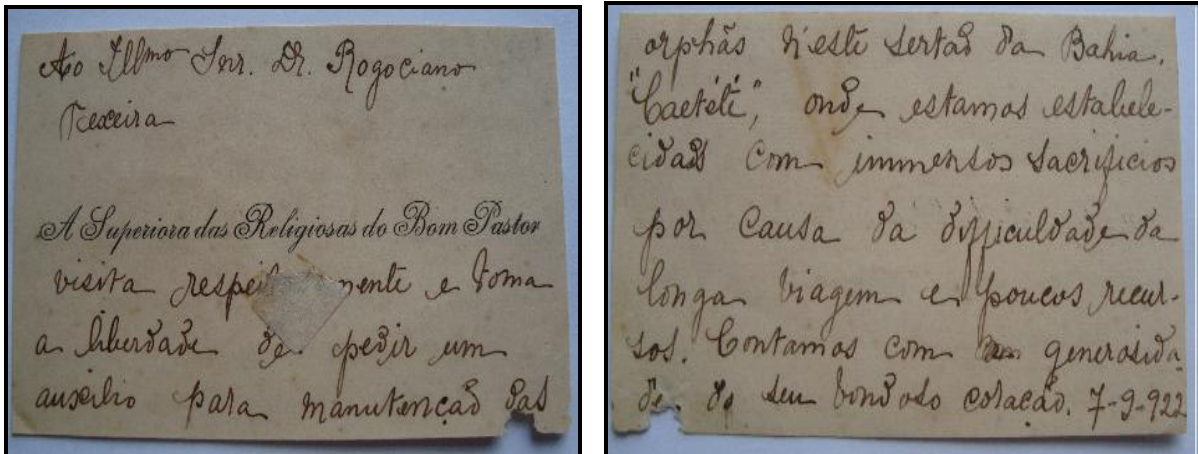 Ao Illmo Snr. Dr. Rogociano
Teixeira
A Superiora das Religiosas do Bom Pastor
visita respei mente e toma
a liberdade de pedir um
auxilio para manutenção das
orphãs n'este sertão da Bahia,
"Caetété", onde estamos estabele-
cidas com immensos sacrificios
por causa da difficuldade da
longa viagem e poucos recur-
sos. Contamos com a generosida
de do seu bondoso coração. 7-9-922